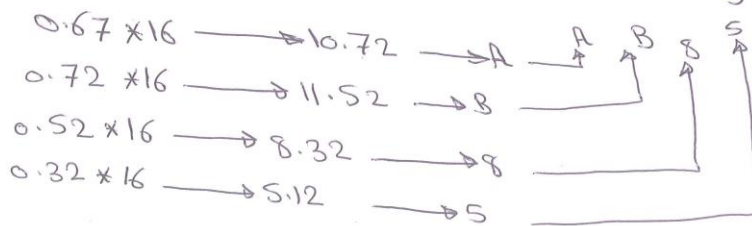 0.67 *16 → 10.72 → A A B 8 5
0.72 *16 → 11.52 → B
0.52 *16 → 8.32 → 8
0.32 * 16 → 5.12 → 5